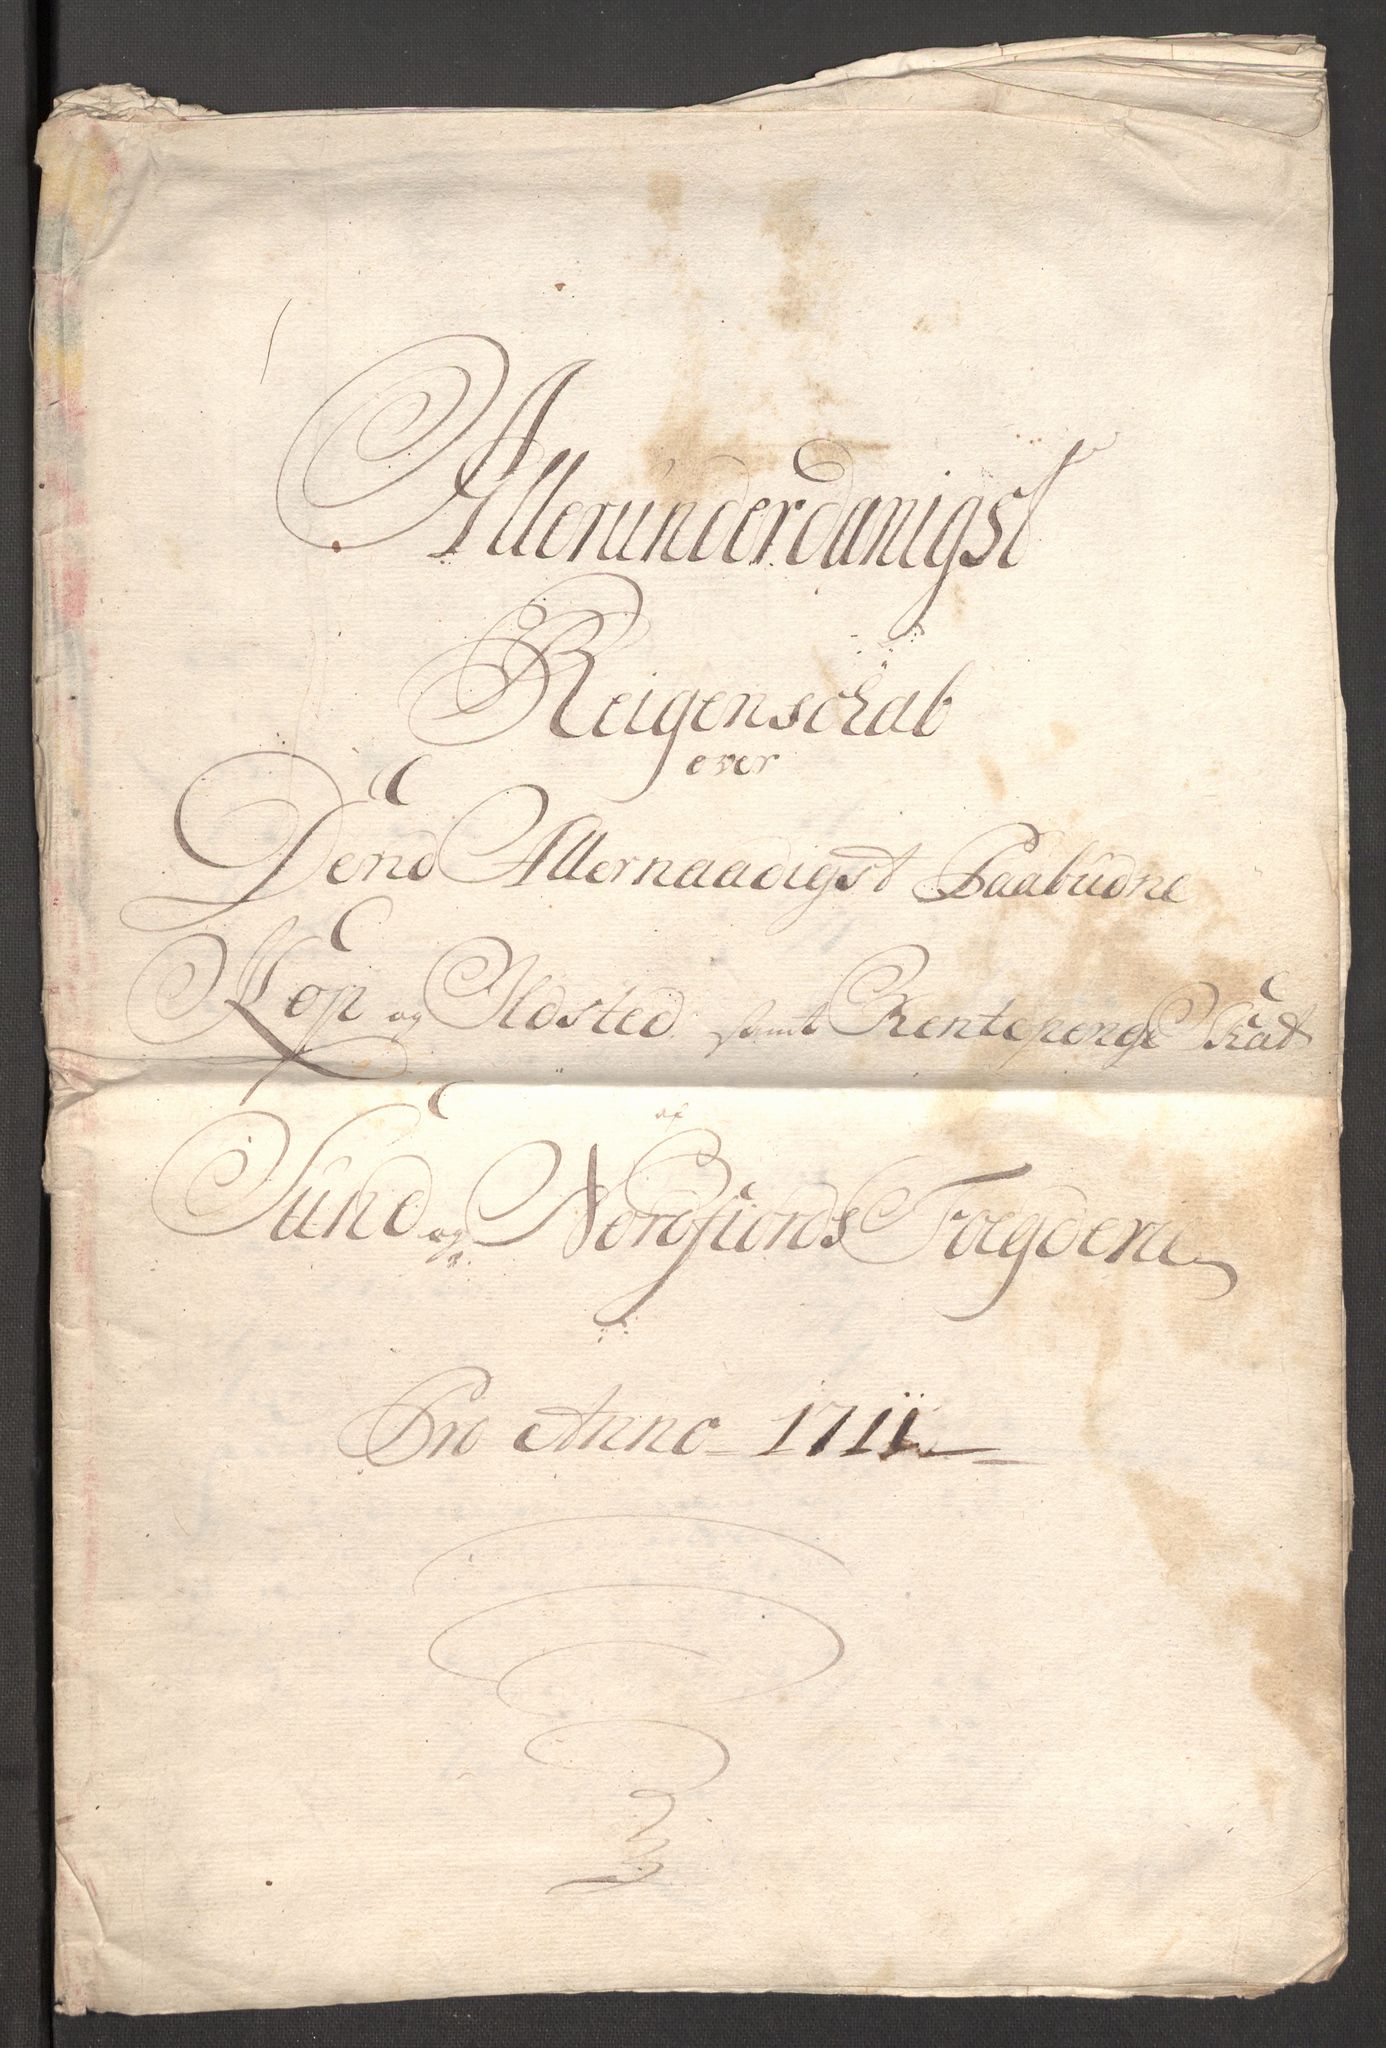 Allerunderdanigst
Reigenschab
over
Dend Allernaadigst Paabudne
Kop og Ildsted samt Rentepenge Skat
af
Sund og Nordfiords Foegderie
Pro Anno 1711